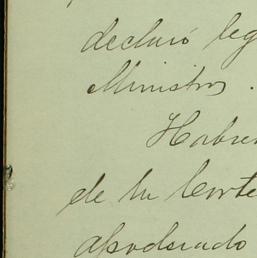 declaró leg
Ministros.
Habien
de la Corte
apoderado